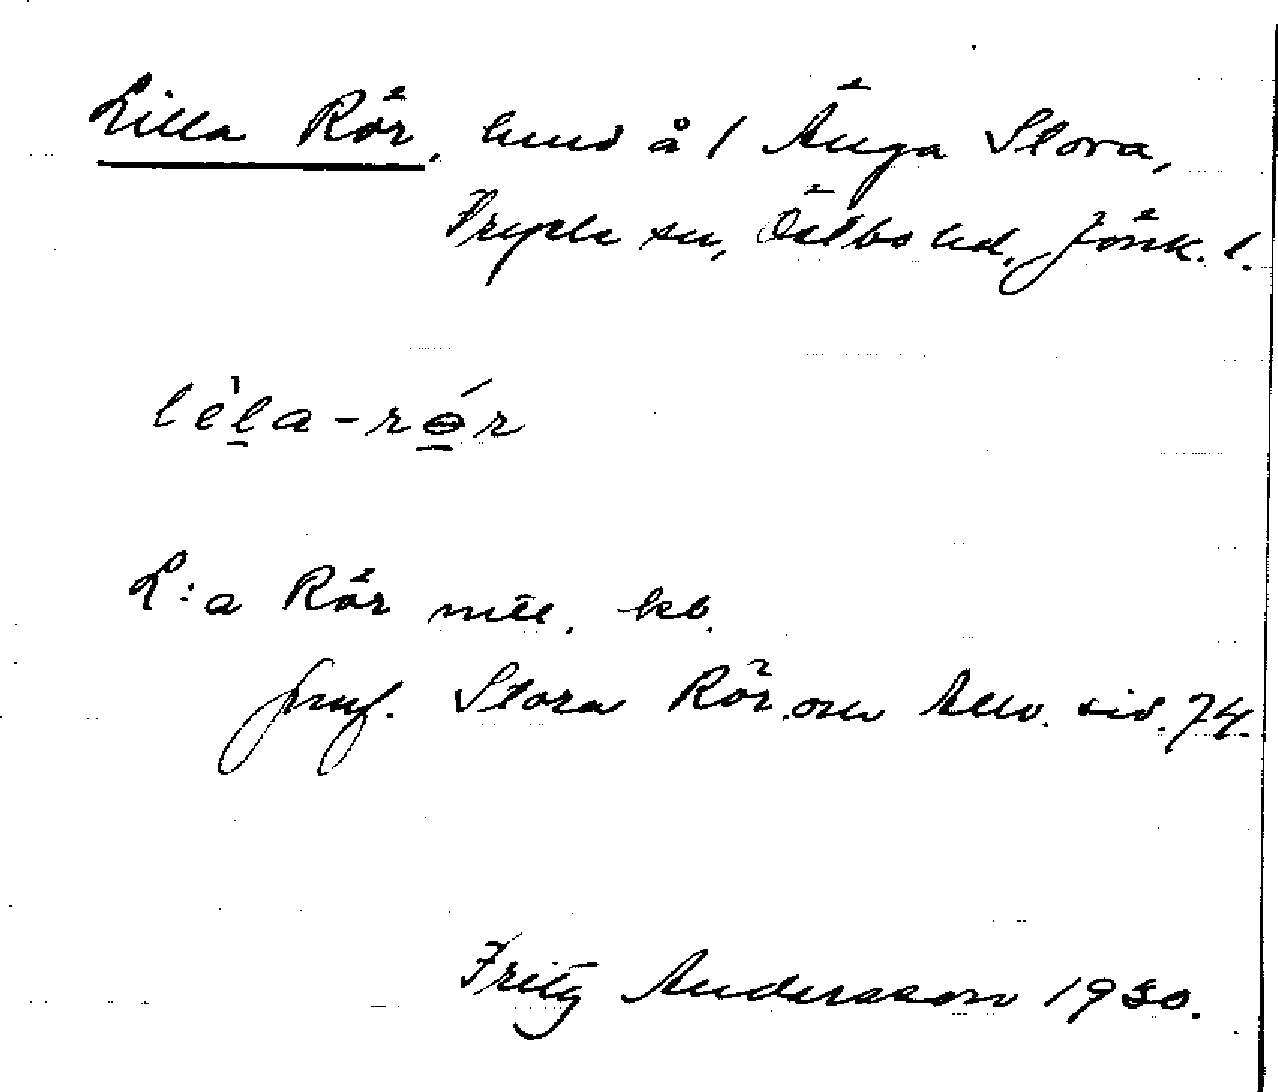 Lilla Rör, hmd å 1 Änga Stora,
Frycle sn, Östbo hd, Jönk. l.
lèla-rǿr
L:a Rör mtl. kb.
jmf. Stora Rör om Anv. sid. 74.
Fritz Andersson 1930.